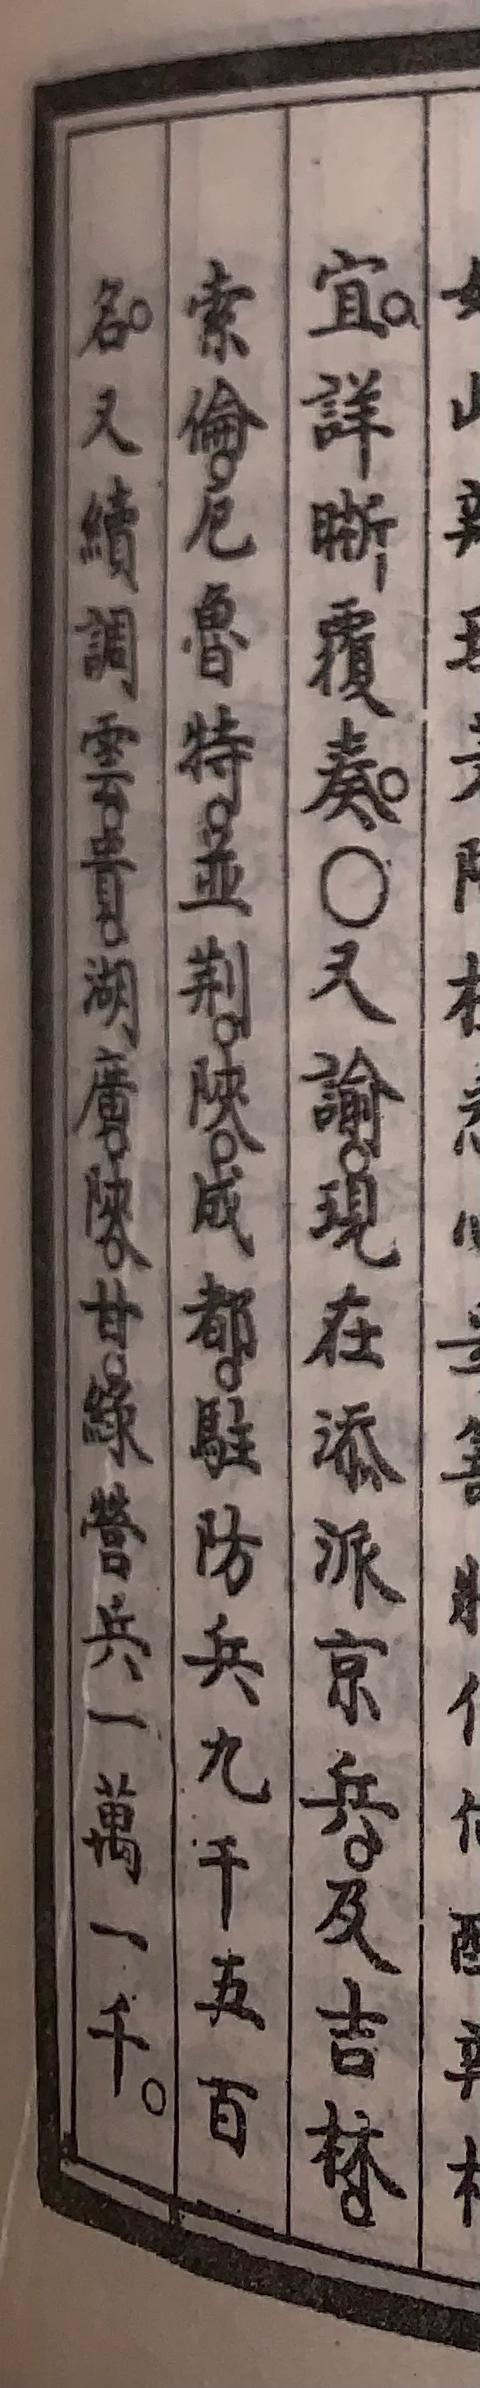 宜。詳晰覆奏。○又諭。現在添派京兵。及吉林。
索倫。厄魯特。並荆。陝。成都。駐防兵九千五百
名。又續調雲。貴。湖廣。陝。甘。綠營兵一萬一千。